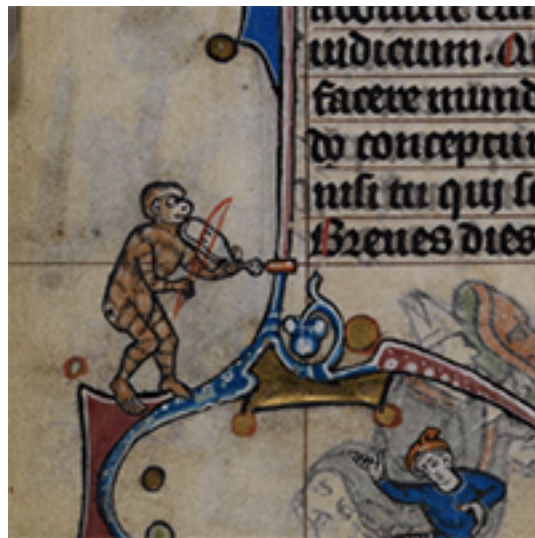 iudicium.
facere mund
do conceptu
nisi tu qui
Breues dies